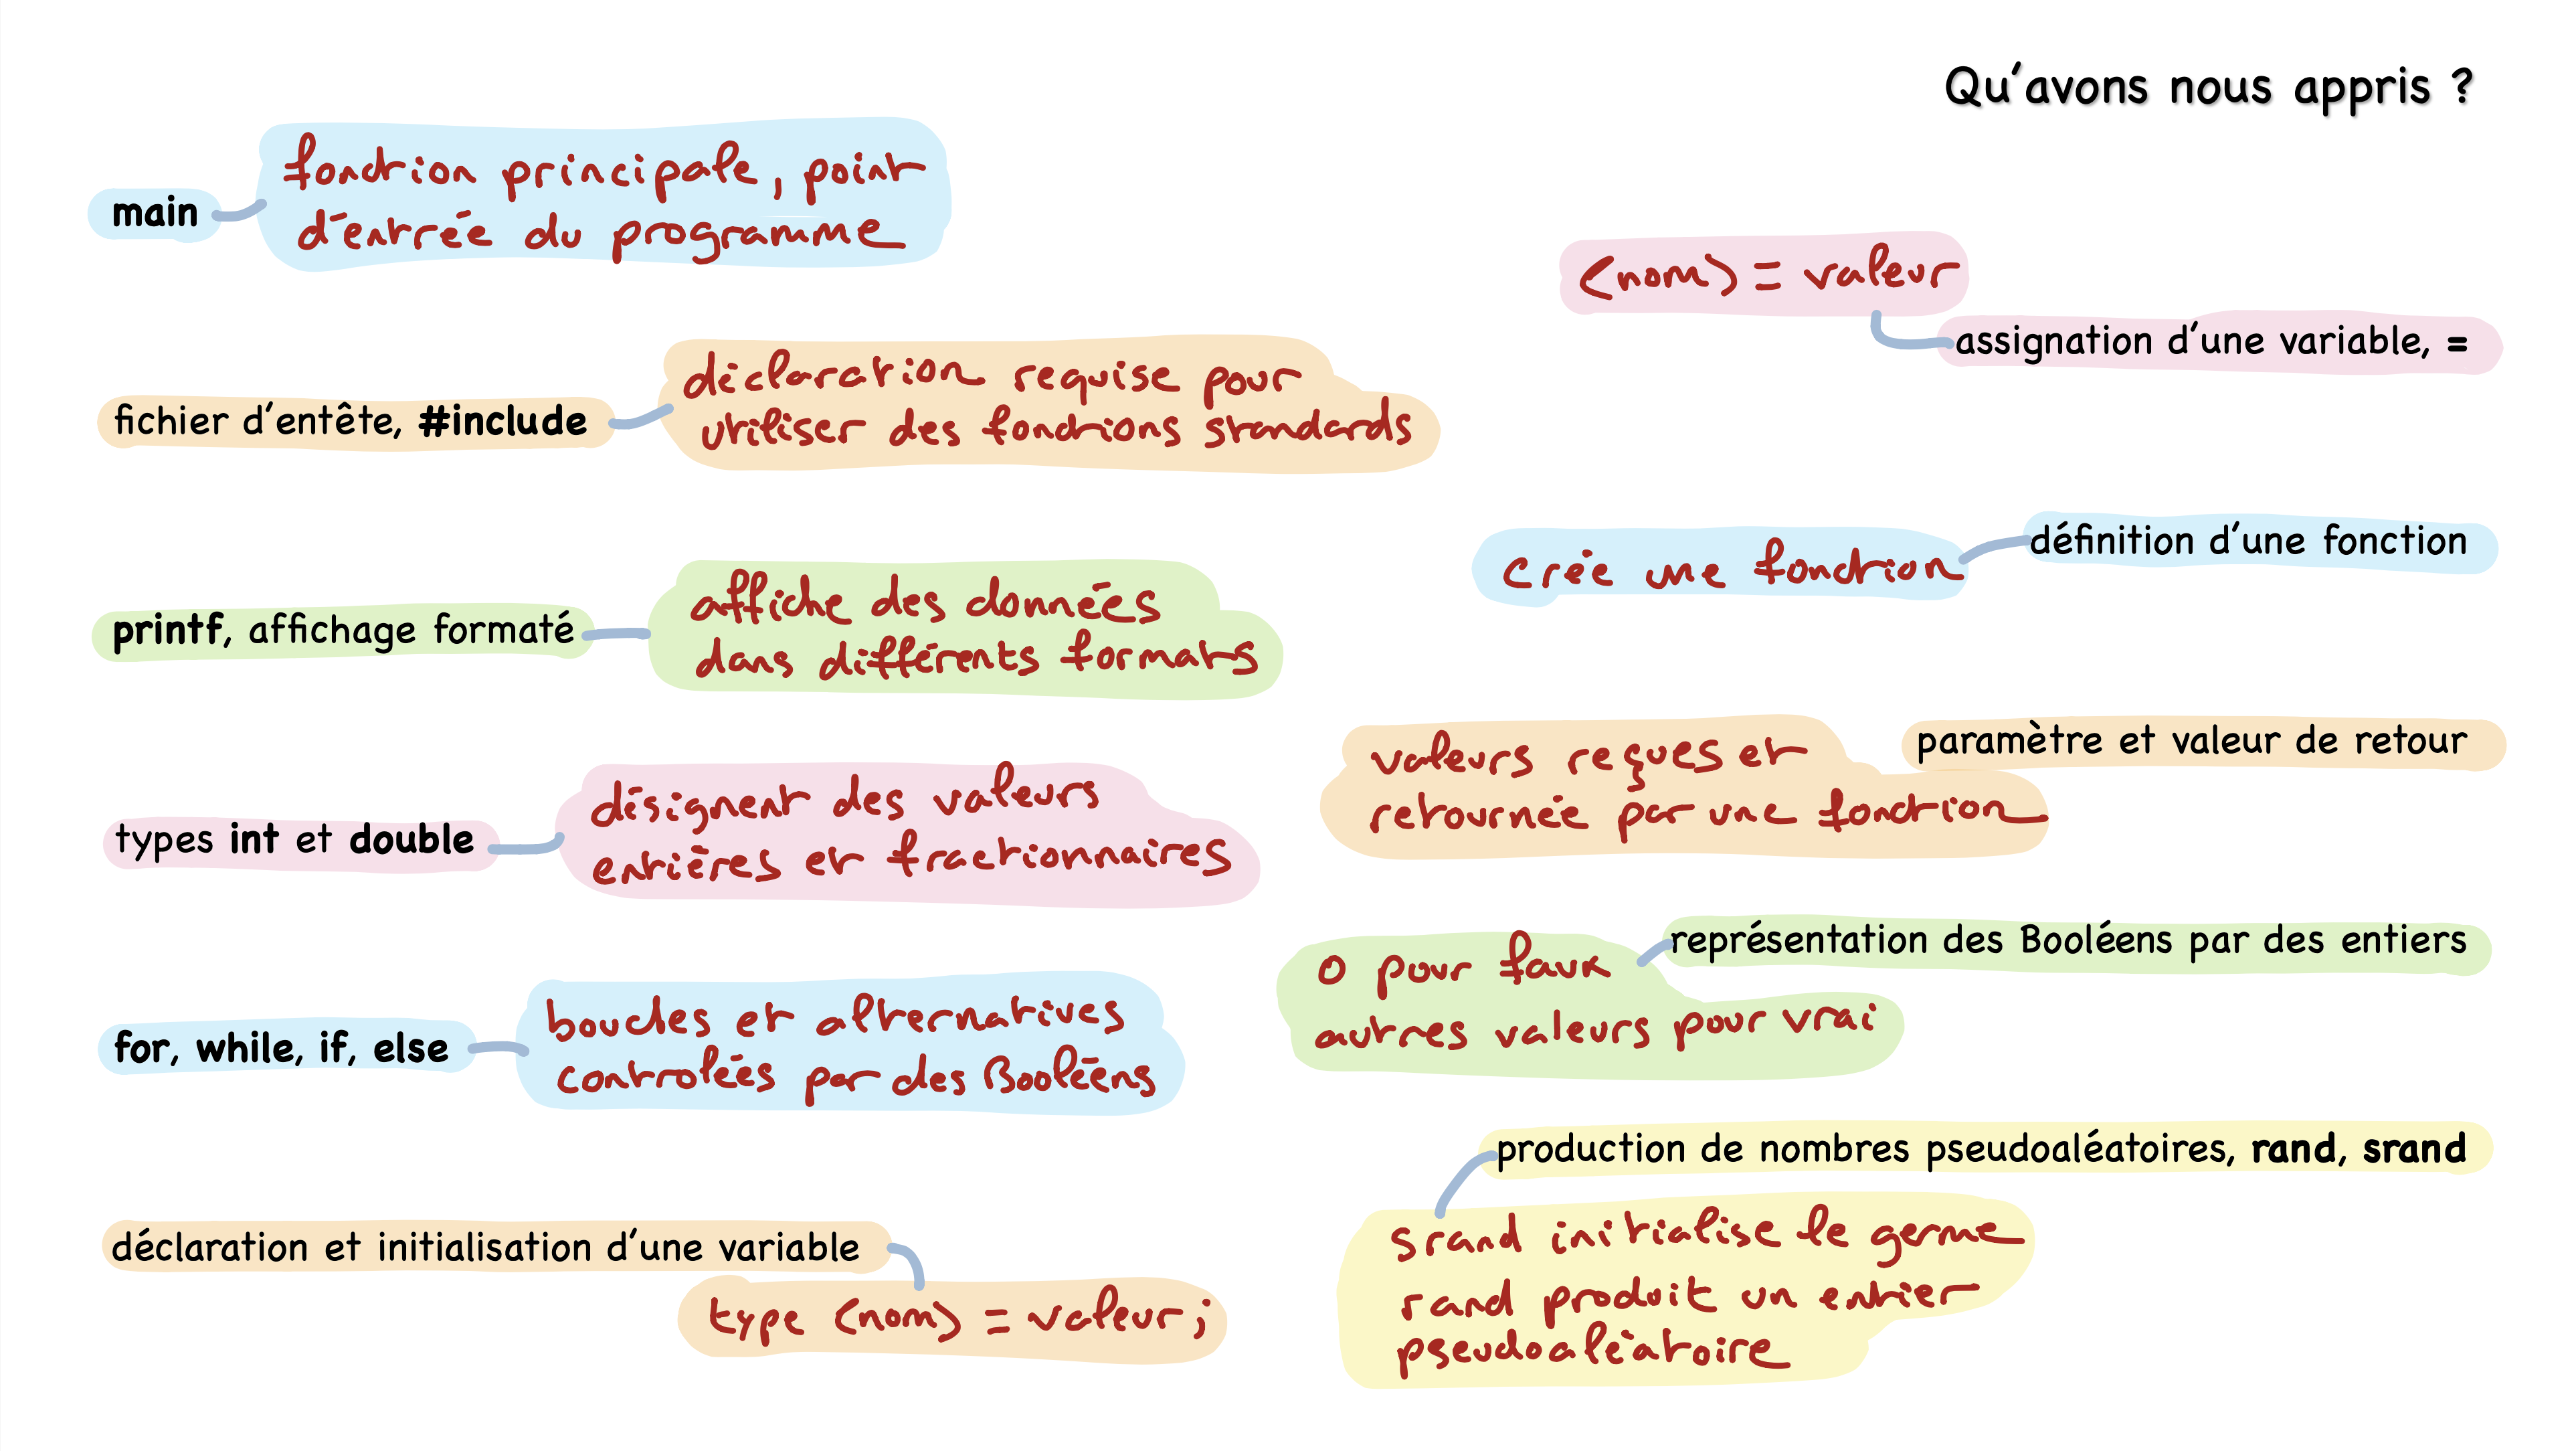 Qu'avons nous appris ?
main
fonction principale, point
d'entrée du programme
fichier d'entête, #include
déclaration requise pour
utiliser des fonctions standards
printf, affichage formaté
affiche des données
dans différents formats
types int et double
désignent des valeurs
entières et fractionnaires
for, while, if, else
boucles et alternatives
contrôlées par des Booléens
déclaration et initialisation d'une variable
type (nom) = valeur ;
(nom) = valeur
assignation d'une variable, =
définition d'une fonction
crée une fonction
paramètre et valeur de retour
valeurs reçues et
retournée par une fonction
représentation des Booléens par des entiers
0 pour faux
autres valeurs pour vrai
production de nombres pseudoaléatoires, rand, srand
srand initialise le germe
rand produit un entier
pseudoaléatoire